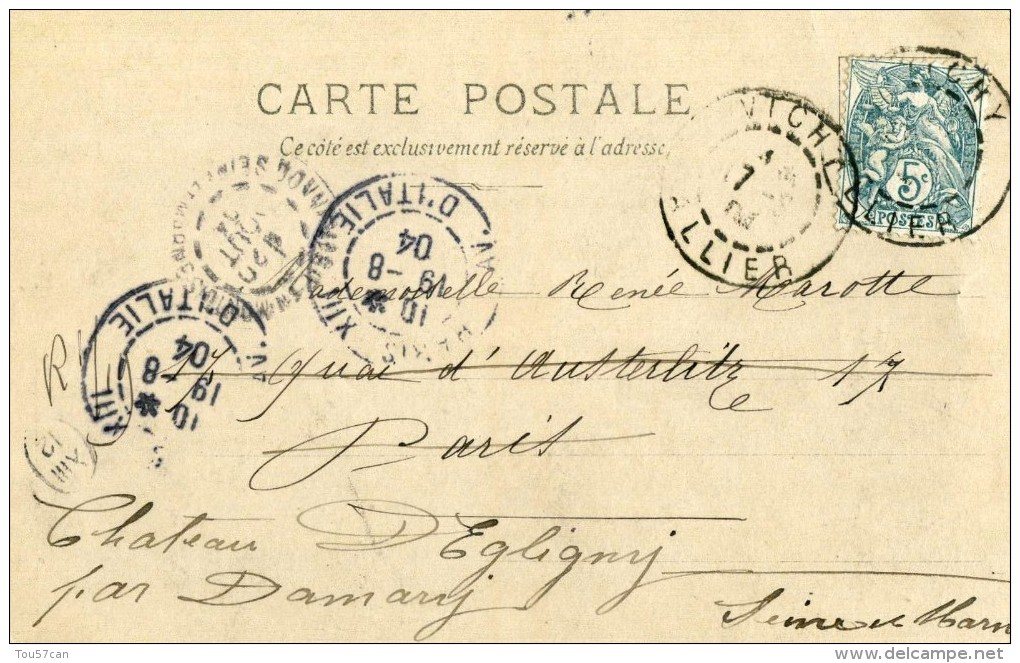 CARTE POSTALE
Ce côté est exclusivement réservé à l'adresse.
VICHY
ALLIER
VICHY
ALLIER
5c
POSTES
PARIS XIII AV. D'ITALIE
10 * 19 - 8 04
XIII AV. D'ITALIE
10 * 19 8 04
Mademoiselle Renée Marotte
17 Quai d'Austerlitz 17
Paris
R
Chateau D'Egligny
par Damary
Seine et Marn
Tou57can
www.delcampe.net